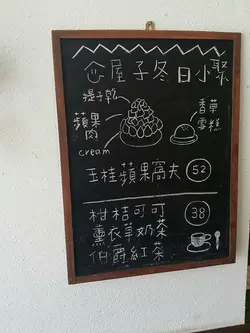 屋子冬日小聚
提子乾
蘋果肉
cream
香草雪糕
玉桂蘋果窩夫 52
柑桔可可 38
薰衣草奶茶
伯爵紅茶